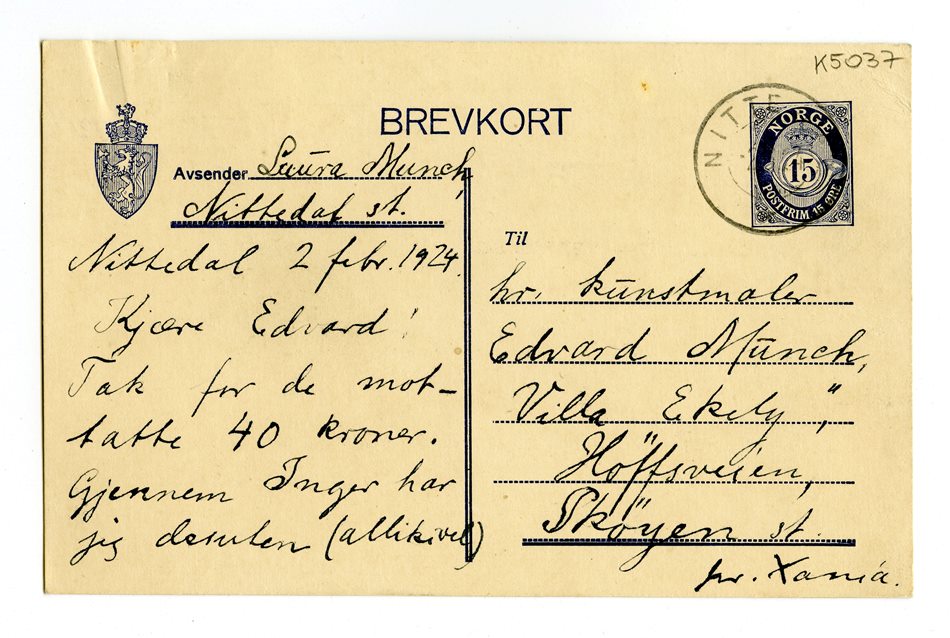 K5037
BREVKORT
NITTE
NORGE
15
POSTFRIM 15 ØRE
Avsender Laura Munch,
Nittedal st.
Nittedal 2 febr. 1924.
Kjære Edvard!
Tak for de mot-
tatte 40 kroner.
Gjennem Inger har
jeg desuten (allikevel)
Til
hr. kunstmaler
Edvard Munch,
Villa Ekely",
Höffsveien,
Sköyen st.
pr. Xania.